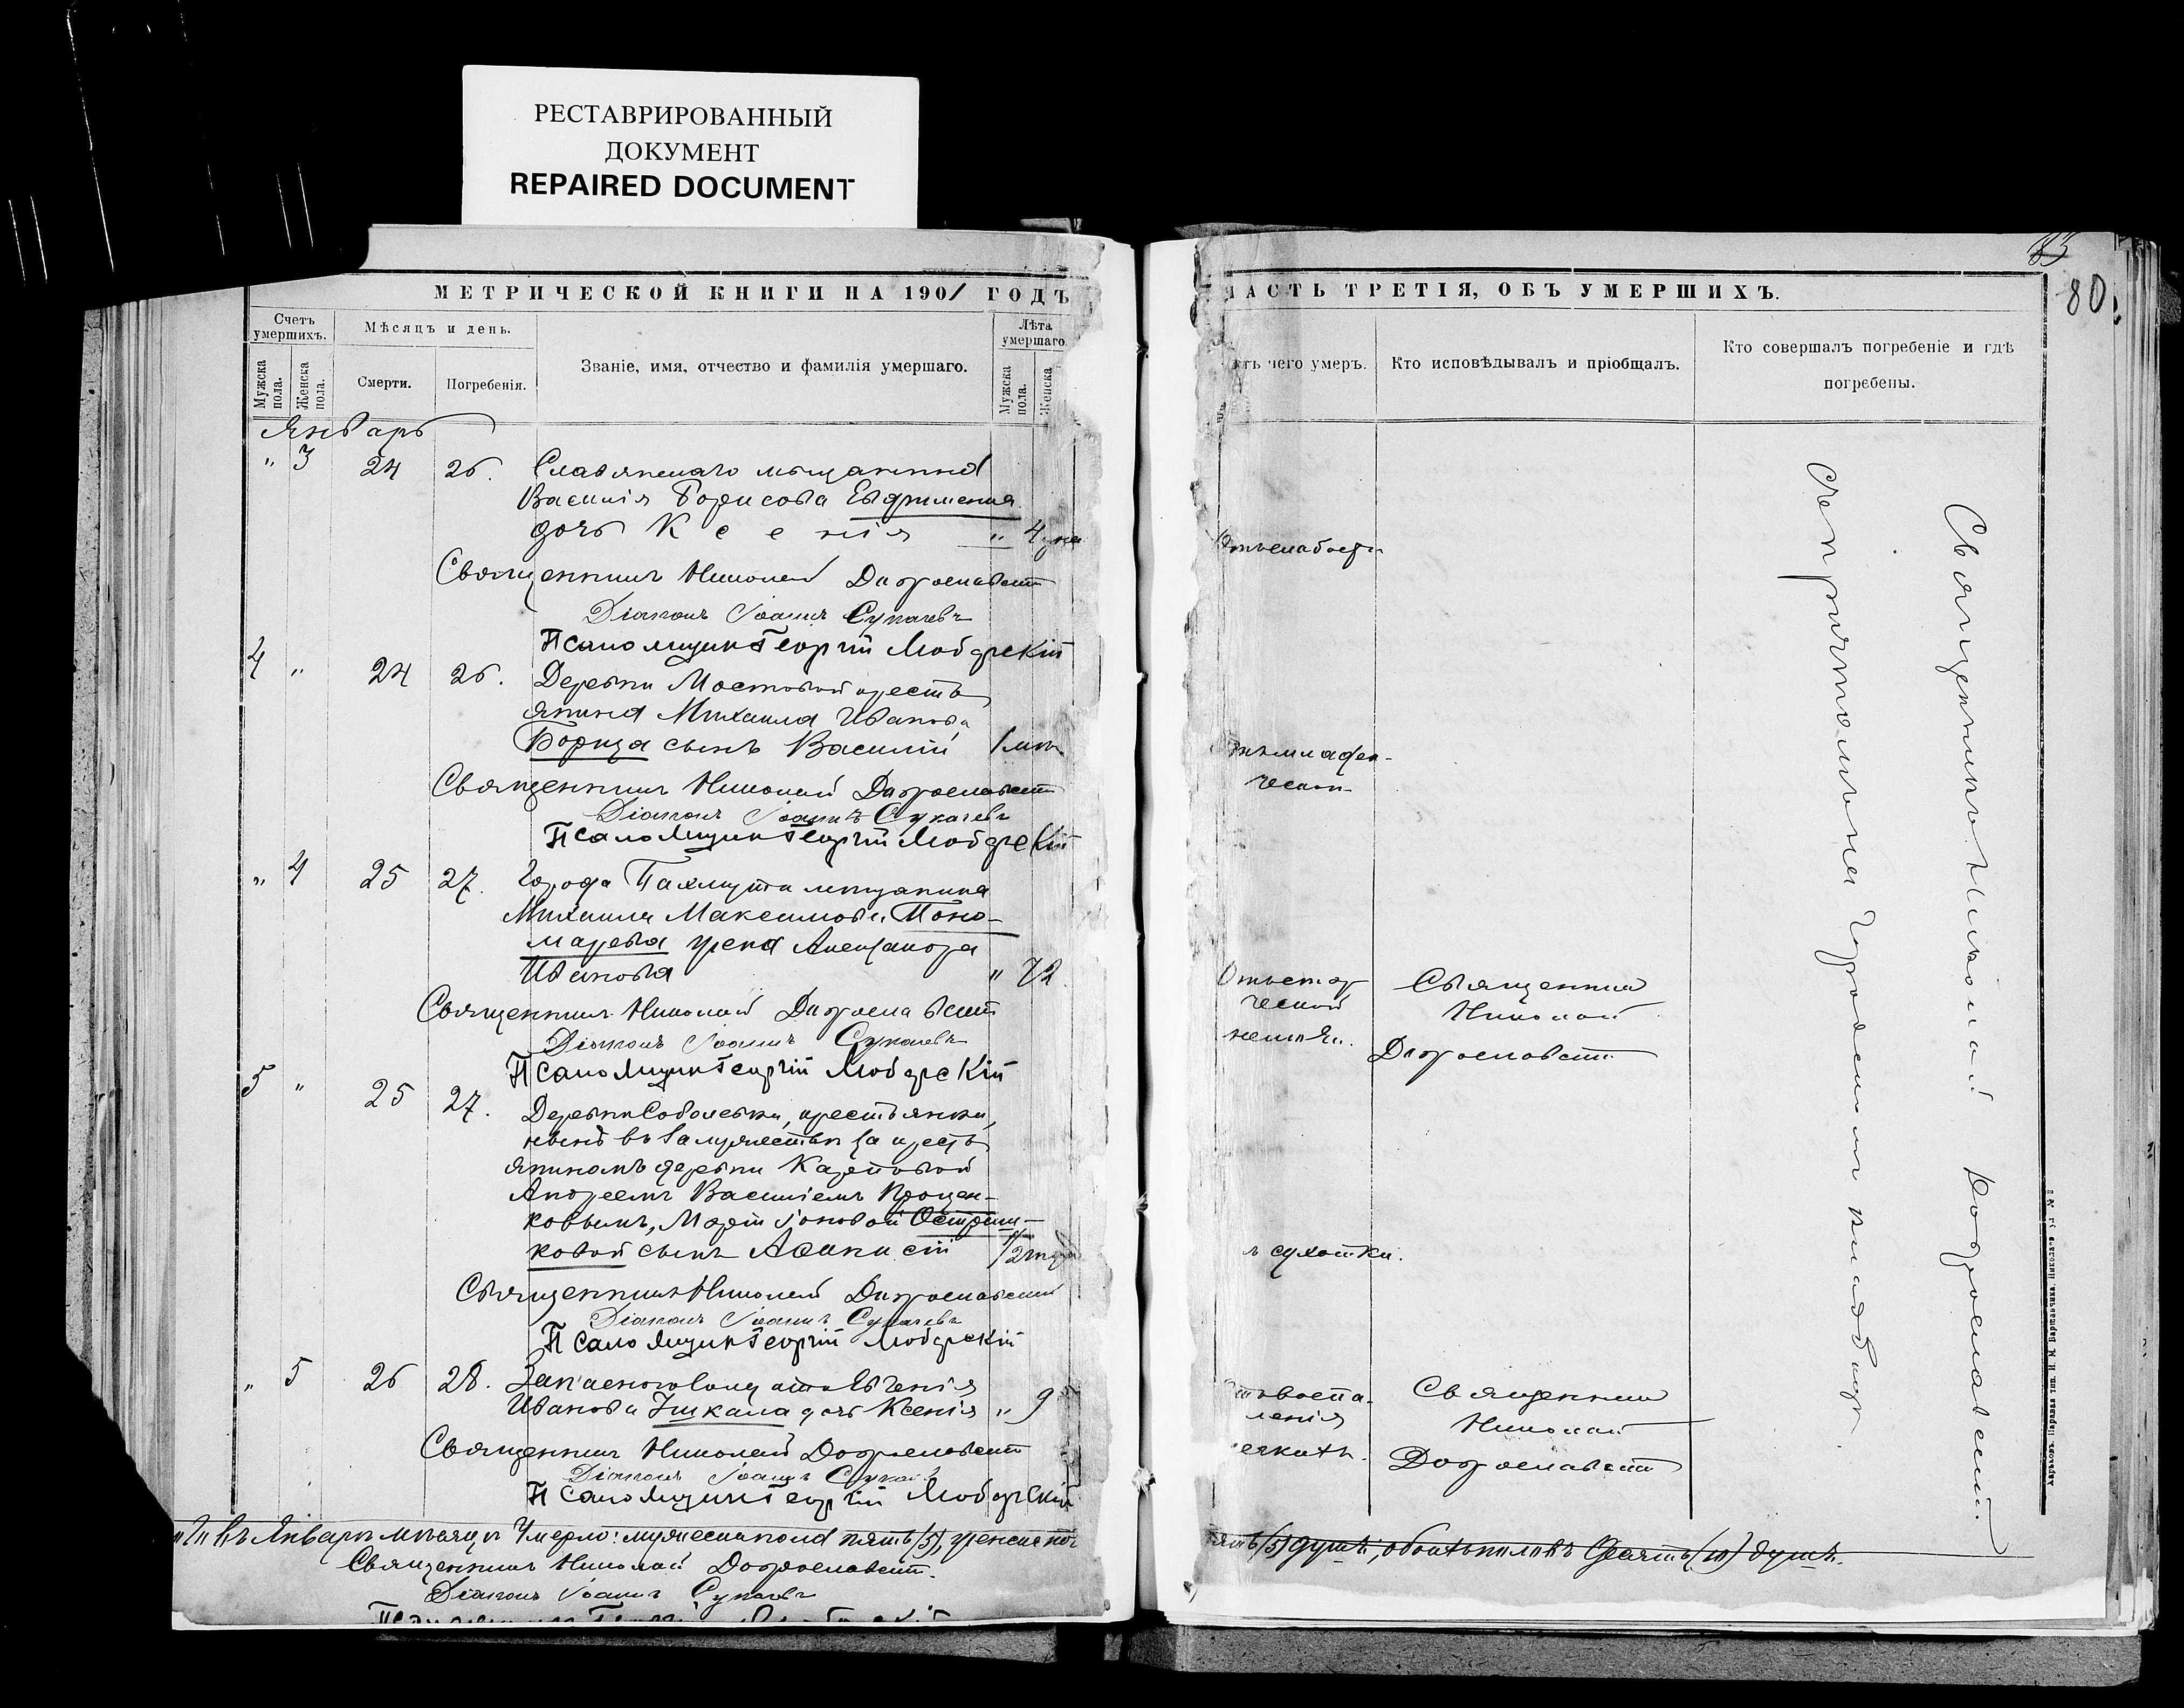 РЕСТАВРИРОВАННЫЙ
ДОКУМЕНТ
REPAIRED DOCUMENT
МЕТРИЧЕСКОЙ КНИГИ НА 1901 ГОДЪ
Счетъ умершихъ.
Мужска пола.
Женска пола.
Мѣсяцъ и день.
Смерти.
Погребенія.
Званіе, имя, отчество и фамилія умершаго.
Лѣта умершаго
Мужска пола.
Женска
Январь
" 3 24 26. Славянскаго мѣщанина
Василія Борисова Евфименка
дочь Ксенія " 4
Священникъ Николай Доброславскій
Діаконъ Іоаннъ Сукачевъ
Псаломщикъ Георгій Любарскій
4 " 24 26. Деревни Мостовой кресть
янина Михаила Иванова
Борща сынъ Василій 1
Священникъ Николай Доброславскій
Діаконъ Іоаннъ Сукачевъ
Псаломщикъ Георгій Любарскій
" 4 25 27. Города Бахмута мѣщанина
Михаила Максимова Поно-
марева жена Александра
Иванова " 72
Священникъ Николай Доброславскій
Діаконъ Іоаннъ Сукачевъ
Псаломщикъ Георгій Любарскій
5 " 25 27. Деревни Соболевки, крестьянки,
нынѣ въ замужествѣ за кресть
яниномъ деревни Карповой
Андреемъ Василіемъ Процен-
ковымъ, Марѳ
ковой сынъ Аѳанасій 1/2
Священникъ Николай Доброславскій
Діаконъ Іоаннъ Сукачевъ
Псаломщикъ Георгій Любарскій
" 5 26 28. Запаснаго Евгенія
Иванова дочь Ксенія " 9
Священникъ Николай Доброславскій
Діаконъ Іоаннъ Сукачевъ
Псаломщикъ Георгій Любарскій
въ Январѣ мѣсяцѣ умерло: мужеска пола пять (5), женска по
Священникъ Николай Доброславскій
Діаконъ Іоаннъ Сукачевъ
ЧАСТЬ ТРЕТІЯ, ОБЪ УМЕРШИХЪ.
80.
отъ чего умеръ.
Кто исповѣдывалъ и пріобщалъ.
Кто совершалъ погребеніе и гдѣ
погребены.
Отъ слабости
младен-
ческ
Отъ стар
ческой
Священникъ
Николай
Доброславскій
сухотки.
воспа-
ленія
Священникъ
Николай
Доброславскій
Священникъ Николай Доброславскій
Съ причтомъ на Городскомъ кладбищѣ
ять (5) душъ, обоихъ половъ десять (10) душъ.